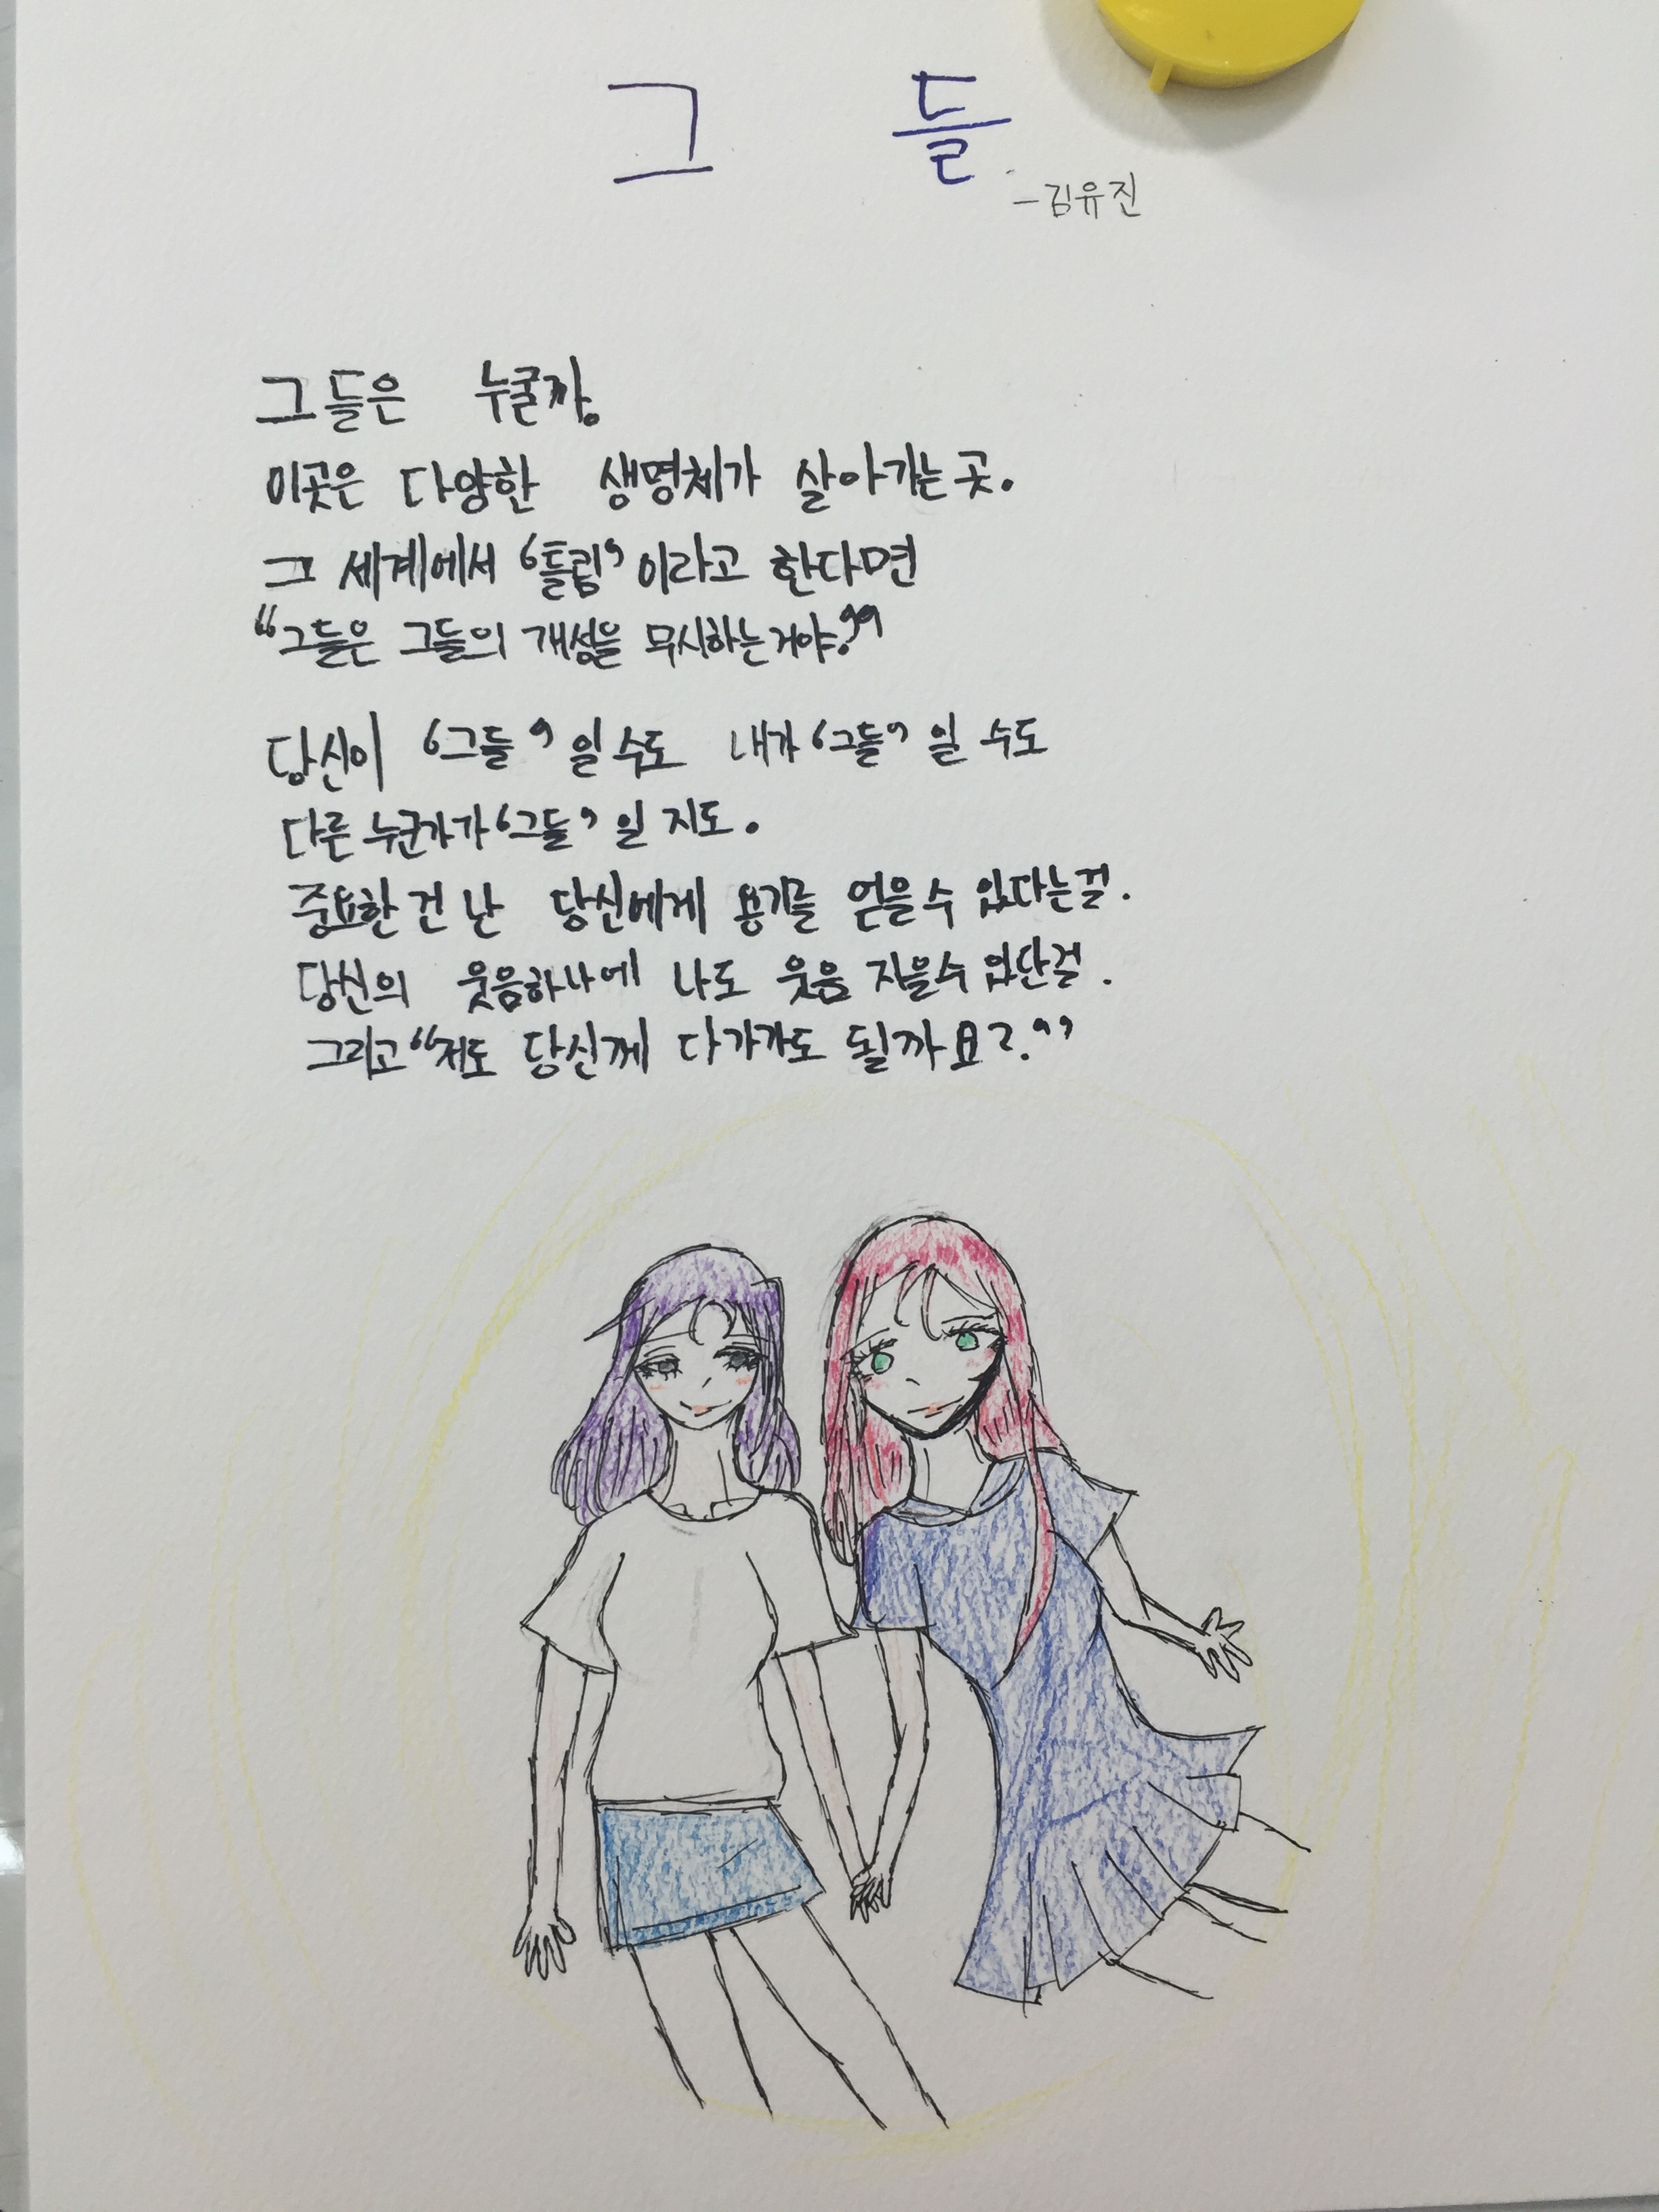 그들
-김유진
그들은 누굴까.
이곳은 다양한 생명체가 살아가는 곳.
그 세계에서 '틀림'이라고 한다면
"그들은 그들의 개성을 무시하는거야."
당신이 '그들'일 수도 내가 '그들'일 수도
다른 누군가가 '그들'일 지도.
중요한 건 난 당신에게 용기를 얻을 수 있다는걸.
당신의 웃음하나에 나도 웃음 지을수 있단걸.
그리고 "저도 당신께 다가가도 될까요?."